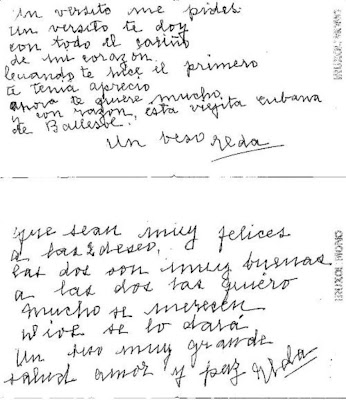 Un versito me pides
un versito te doy
con todo el cariño
de mi corazon.
Cuando te hice el primero
te tenia aprecio
ahora te quiero mucho,
y con razon, esta viejita cubana
de Ballesol.
Un beso Reda
Que sean muy felices
a las 2 deseo,
las dos son muy buenas
a las dos las quiero
mucho se merecen
Dios se lo dará
Un beso muy grande
salud amor y paz Reda